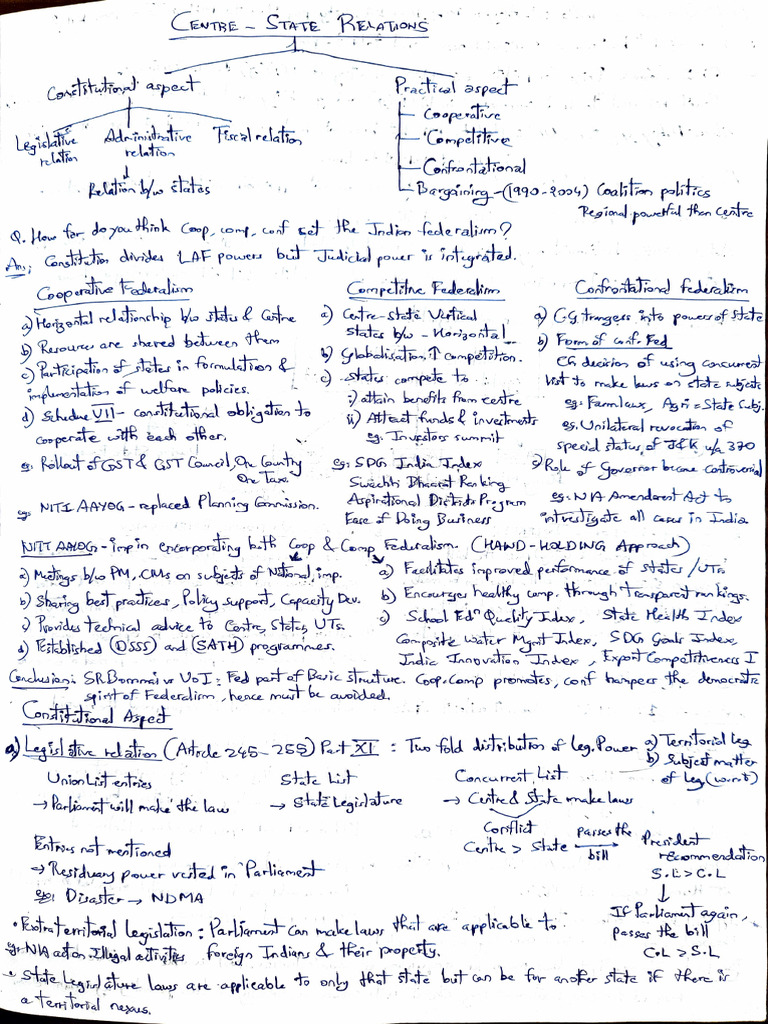 CENTRE - STATE RELATIONS
Constitutional aspect
Practical aspect
Legislative relation
Administrative relation
Fiscal relation
Relation b/w states
Cooperative
Competitive
Confrontational
Bargaining - (1990-2004) Coalition politics
Regional powerful than centre
Q. How far do you think Coop, comp, conf set the Indian federalism?
Ans: Constitution divides LAF powers but Judicial power is integrated.
Cooperative Federalism
a) Horizontal relationship b/w states & Centre
b) Resources are shared between them
c) Participation of states in formulation &
implementation of welfare policies.
d) Schedule VII - constitutional obligation to
cooperate with each other.
eg: Rollout of GST & GST Council, One Country
One Tax.
eg: NITI AAYOG - replaced Planning Commission.
Competitive Federalism
a) Centre-state Vertical
States b/w - Horizontal
b) Globalisation, ↑ competition.
c) States compete to:
i) attain benefits from centre
ii) Attract funds & investments
eg: Investors summit
eg: SDG India Index
Swachh Bharat Ranking
Aspirational Districts Program
Ease of Doing Business
Confrontational federalism
a) C.G. trangers into powers of State
b) Form of conf. Fed
CG decision of using concurrent
list to make laws on state subjects
eg: Farm laws, Agri = State Subj.
eg: Unilateral revocation of
special status of J&K u/a 370
c) Role of Governor become controversial
eg: NIA Amendment Act to
investigate all cases in India.
NITI AAYOG - imp in encorporating both Coop & Comp Federalism. (HAND-HOLDING Approach)
a) Meetings b/w PM, CMs on subjects of National imp.
b) Sharing best practices, Policy support, Capacity Dev.
c) Provides technical advice to Centre, States, UTs.
d) Established (DSSS) and (SATH) programmes.
a) Facilitates improved performance of States / UTs.
b) Encourages healthy comp. through transparent rankings.
c) School Edn Quality Index, State Health Index
Composite Water Mgmt Index, SDG Goals Index,
India Innovation Index, Export Competitiveness I
Conclusion: SR Bommai vs UoI: Fed part of Basic structure. Coop, Comp promotes, conf hampers the democratic
spirit of Federalism, hence must be avoided.
Constitutional Aspect
a) Legislative relation (Article 245-255) Part XI : Two fold distribution of Leg. Power
a) Territorial Leg
b) Subject matter
of Leg (w.r.t)
Union List entries
→ Parliament will make the law
State List
→ State Legislature
Concurrent List
→ Centre & State make laws
Conflict
Centre > State
passes the bill
President
recommendation
S.L > C.L
If Parliament again,
passes the bill
C.L > S.L
Entries not mentioned
→ Residuary power vested in Parliament
eg: Disaster → NDMA
• Extraterritorial Legislation: Parliament can make laws that are applicable to
eg: NIA action Illegal activities foreign Indians & their property.
• State Legislature laws are applicable to only that state but can be for another state if there is
a territorial nexus.